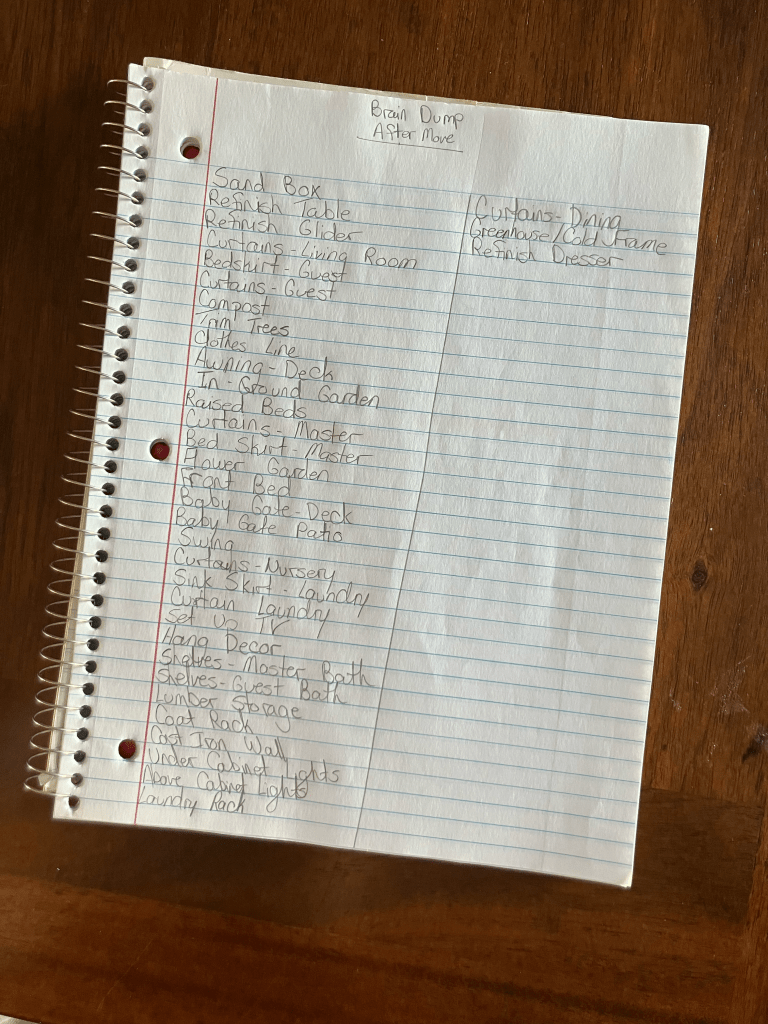 Brain Dump
After Move
Sand Box
Refinish Table
Refinish Glider
Curtains - Living Room
Bedskirt - Guest
Curtains - Guest
Compost
Trim Trees
Clothes Line
Awning - Deck
In - Ground Garden
Raised Beds
Curtains - Master
Bed Skirt - Master
Flower Garden
Front Bed
Baby Gate - Deck
Baby Gate Patio
Swing
Curtains - Nursery
Sink Skirt - Laundry
Curtain Laundry
Set Up TV
Hang Decor
Shelves - Master Bath
Shelves - Guest Bath
Lumber Storage
Coat Rack
Cast Iron Wall
Under Cabinet Lights
Above Cabinet Lights
Laundry Rack
Curtains - Dining
Greenhouse/Cold Frame
Refinish Dresser